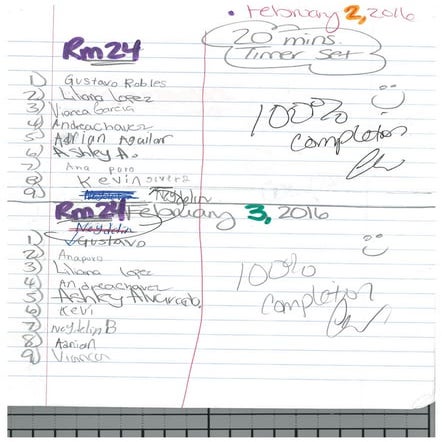 February 2, 2016
Rm 24
20 mins.
Timer Set
1) Gustavo Robles
2) Liliana Lopez
3) Vianca Garcia
4) Andrea chavez
5) Adrian Aguilar
6) Ashley A.
7) Ana
8) Kevin
9) Neydelin
100%
completion
Rm 24 February 3, 2016
Neydelin
1) Gustavo
2)
3) Liliana lopez
4) Andrea chavez
5) Ashley
6) Kevi
7) Neydelin B
8)
9) Vianca
100%
completion